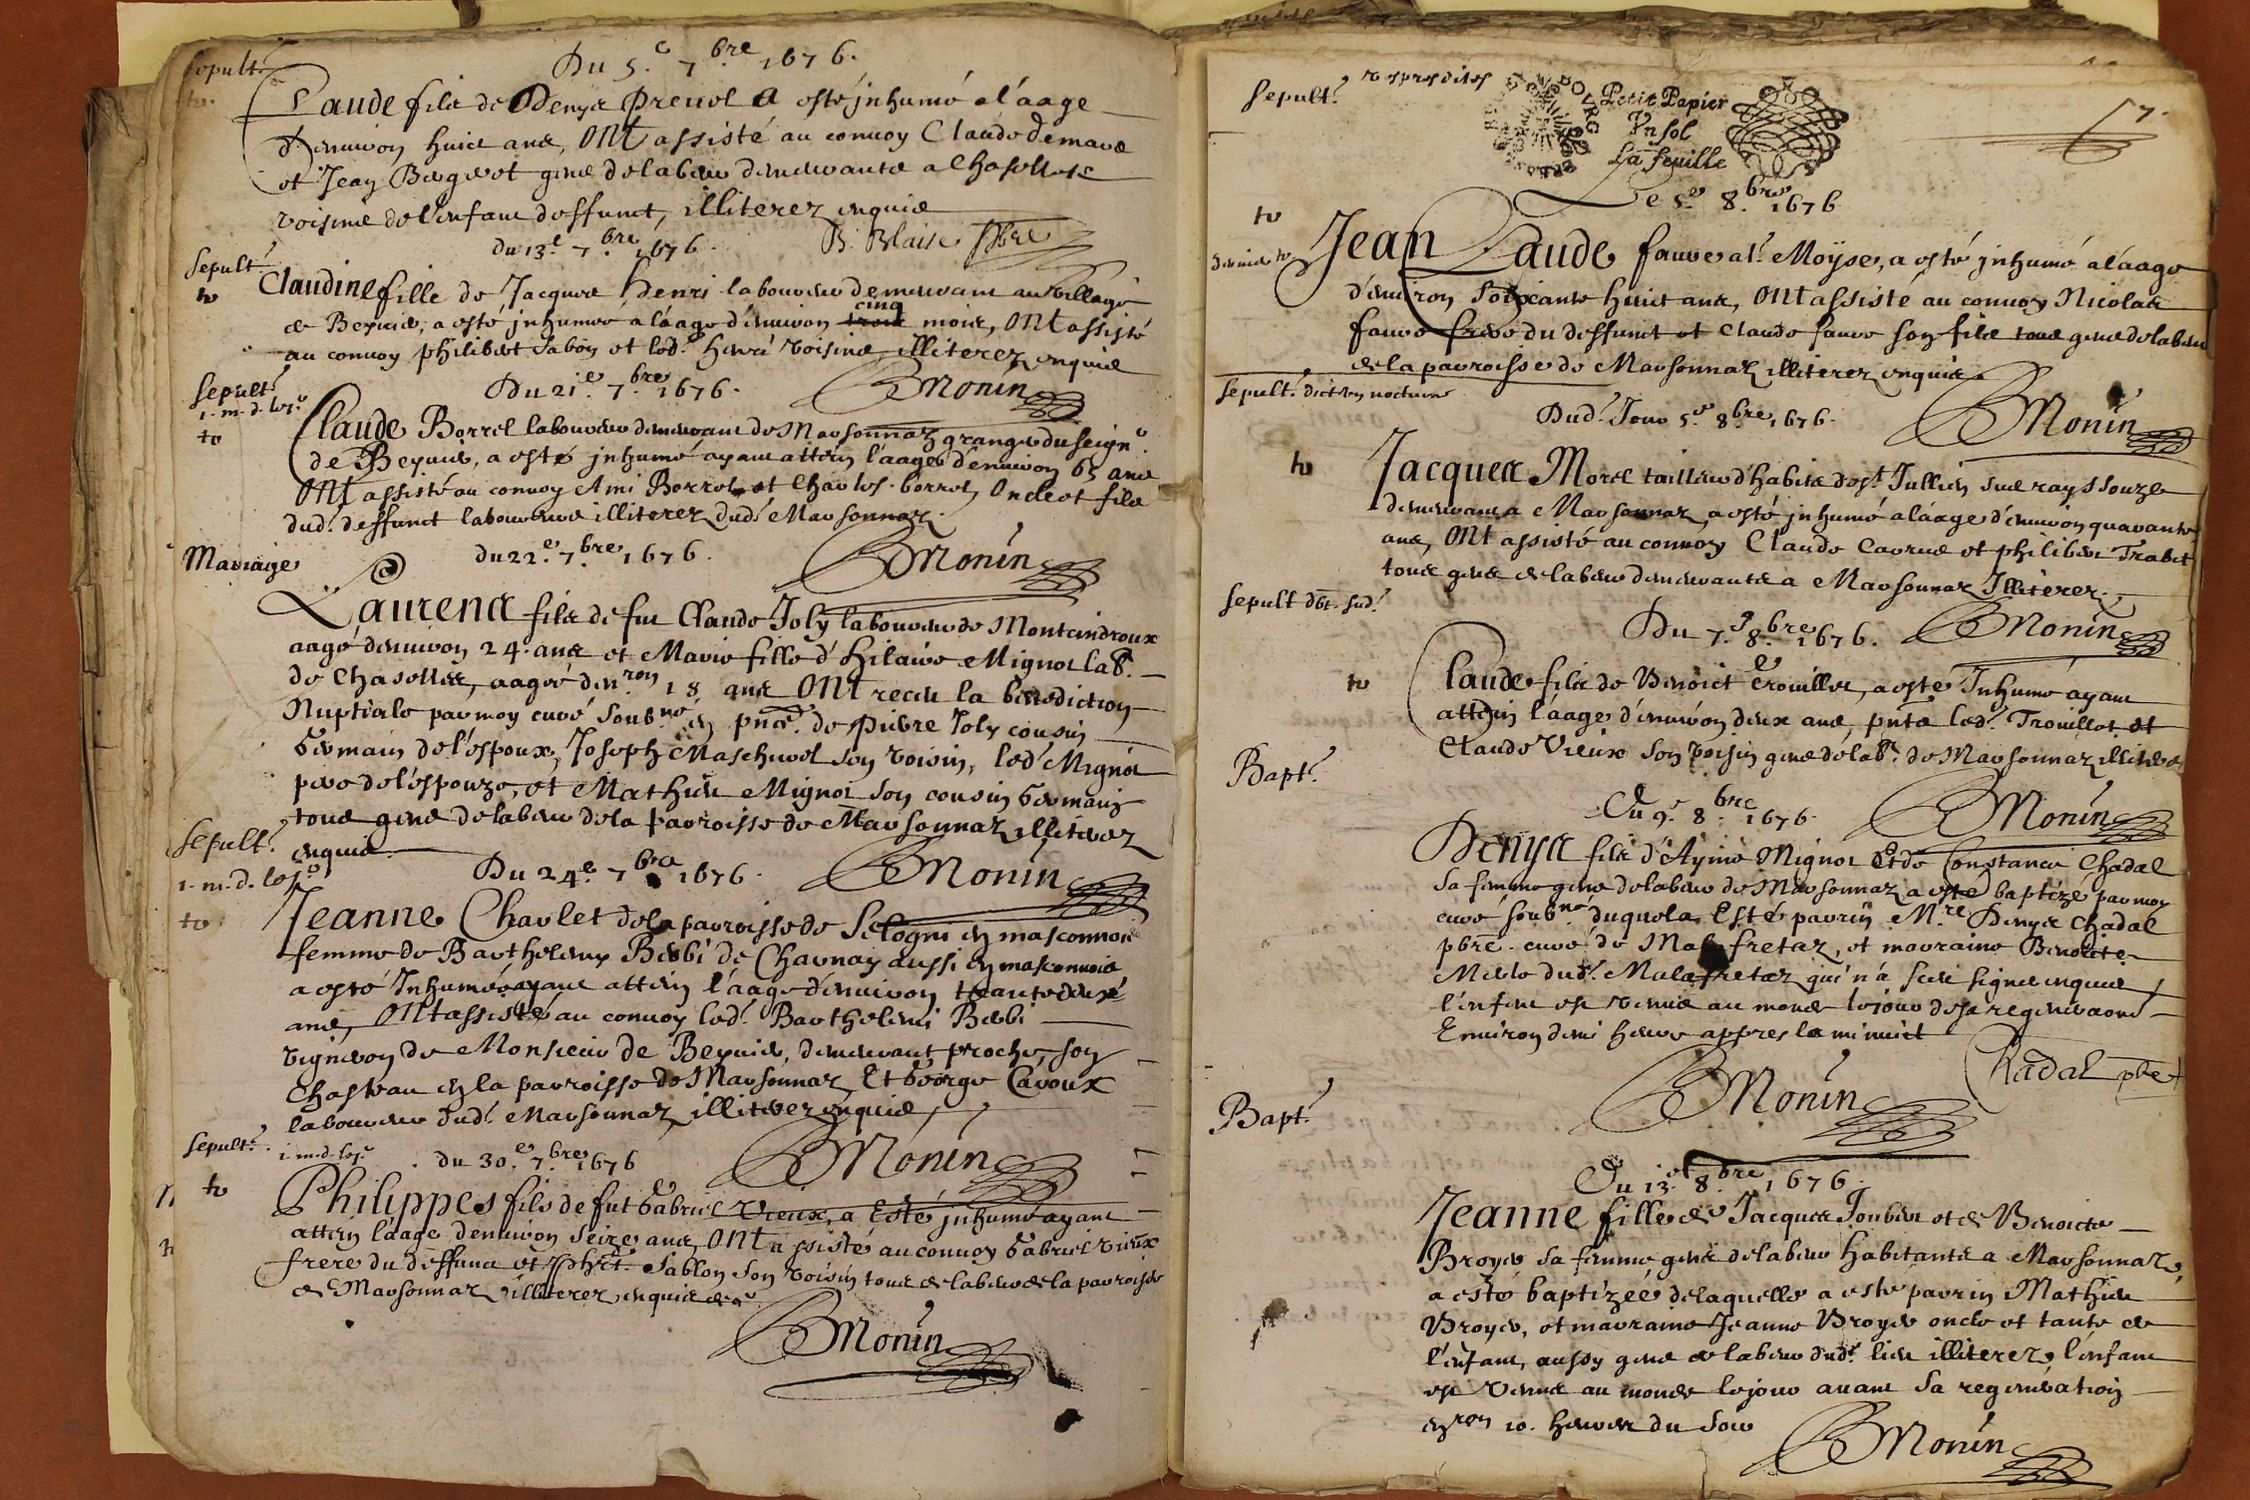 Sepult.e
Du 5.e 7.bre 1676.
to.
Claude fils de Denys Prevol a esté inhumé a l'aage
d'environ huict ans, Ont assisté au convoy Claude
et Jean gens de labeur demeurants a Chasolles
voisins de l'enfant deffunct, illiterez enquis
B. Blaise pbre
du 13.e 7.bre 1676.
Sepult.e
to
Claudine fille de Jacques Henri laboureur demeurant au village
de Beyvier, a esté inhumee a l'aage d'environ cinq mois, Ont assisté
au convoy philibert Sabon et led. Henri voisins, illiterez enquis
Monin
Sepult.e
Du 21.e 7.bre 1676.
to
Claude Borrel laboureur demeurant de Marsonnaz grange du Seign.r
de Beyvier, a esté inhumé ayant atteïn l'aage d'environ 65 ans
Ont assisté au convoy Ami Borrel et Charles borrel, Oncle et fils
dud. deffunct laboureurs illiterez dud. Marsonnaz.
Monin
Mariage
du 22.e 7.bre 1676.
Laurens fils de fut Claude Joly laboureur de Montcindroux
aagé d'environ 24. ans et Marie fille d'Hilaire Mignot lab.
de Chasolles, aagée d'en.ron 18 ans Ont receu la benediction
Nuptiale par moy curé soub.né en pnce. de Pierre Joly cousin
Germain de l'espoux, Joseph Maschurel son voisin, led. Mignot
pere de l'espouze, et Mathieu Mignot son cousin Germain
tous gens de labeur de la parroisse de Marsonnaz illiterez
enquis.
Monin
Sepult.e
Du 24.e 7.bre 1676.
to
Jeanne Charlet de la parroisse de Sologni en masconnois
femme de Barthelemy Berbi de Charnay aussi en masconnois
a esté Inhumée ayant atteïn l'aage d'environ
ans, Ont assisté au convoy led. Barthelemi Berbi
vigneron de Monsieur de Beyvier, demeurant proche son
Chasteau en la parroisse de Marsonnaz Et George Cavoux
laboureur dud. Marsonnaz illiterez enquis
Monin
Sepult.e
du 30.e 7.bre 1676
to
Philippes fils de fut Gabriel Vieux, a Esté inhumé ayant
atteïn l'aage d'environ Seize ans, Ont assisté au convoy Gabriel Vieux
frere du deffunct et phrt. Sablon son voisin tous de labeur de la parroisse
de Marsonnaz illiterez enquis
Monin
Sepult.e
Petit Papier
Vn sol
La feuille
57.
Le 5.e 8.bre 1676
to
Jean Claude fauve al.s Moyse, a esté inhumé a l'aage
d'environ Soixante huict ans, Ont assisté au convoy Nicolas
fauve frere du deffunct et Claude fauve son fils tous gens de labeur
de la parroisse de Marsonnaz illiterez enquis.
Monin
Sepult.e
Dud. Jour 5.e 8.bre 1676.
to
Jacques Morel tailleur d'habits de S.t Jullien sus rayssouze
demeurant a Marsonnaz, a esté inhumé a l'aage d'environ quarante
ans, Ont assisté au convoy Claude Carrue et philibert Trabet
tous gens de labeur demeurants a Marsonnaz Illiterez.
Monin
Sepult
Du 7.e 8.bre 1676.
to
Claude fils de Benoict Trouillet, a esté Inhumé ayant
atteïn l'aage d'environ deux ans, pnts led. Trouillet et
Claude Vieux son voisin gens de lab.r de Marsonnaz illiterez
Monin
Bapt.e
Du 9.e 8.bre 1676.
Denys fils d'Aymé Mignot Et de Constance Chadal
sa femme gens de labeur de Marsonnaz a esté baptizé par moy
curé soub.né duquel a Esté parrin M.re Denys Chadal
pbre. curé de Malafretaz, et marraine Benoite
Merle dud. Malafretaz qui n'a sceu signer enquise
l'enfant est venu au monde le jour de sa regeneraon
Environ demi heure appres la minuict
Chadal pbre
Monin
Bapt.e
Du 13.e 8.bre 1676.
Jeanne fille de Jacques Joubert et de Benoicte
Broyer sa femme gens de labeur habitants a Marsonnaz,
a esté baptizée de laquelle a esté parrin Mathieu
Broyer, et marraine Jeanne Broyer oncle et tante de
l'enfant, aussy gens de labeur dud. lieu illiterez, l'enfant
est venue au monde le jour avant sa regeneration
en.ron 10. heures du soir
Monin